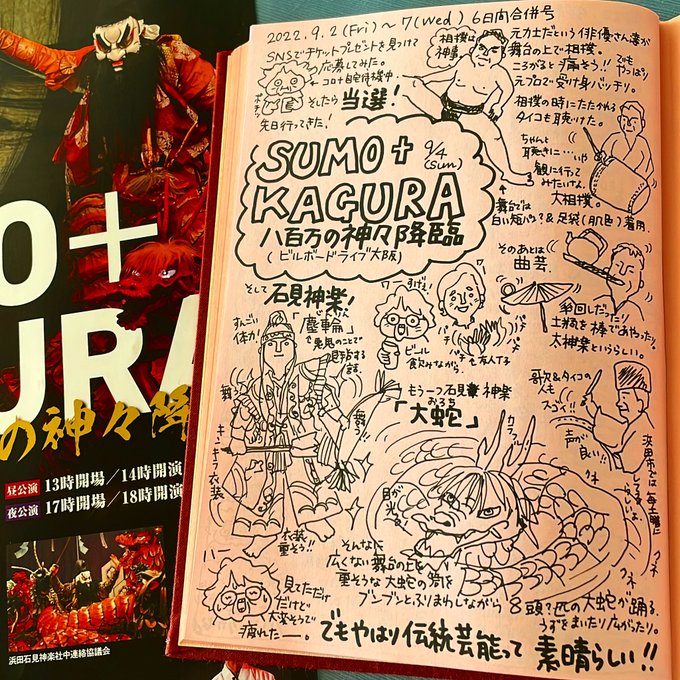 2022.9.2(Fri)～7(Wed) 6日間合併号
SNSでチケットプレゼントを見つけて
応募してみた。
←コロナ自宅待機中
ポチッ
そしたら当選！
先日行ってきた！
相撲は
神事
元力士だという俳優さん達が
舞台の上で相撲。
ころがると痛そう!! でも
やっぱり
元プロで受け身バッチリ。
相撲の時にたたかれる
タイコも聴けた。
ちゃんと
聴きに…いや
観に行って
みたいなぁ、
大相撲。
舞台では
白い短パン?&足袋(肌色)着用
SUMO+
9/4
(sun)
KAGURA
八百万の神々降臨
(ビルボードライブ大阪)
そのあとは
曲芸。
傘回しだったり
土瓶を棒であやつったり。
太神楽というらしい。
そして
石見神楽！
じんりん
「塵輪」
を鬼のことで
退治する
話。
すんごい
体力！
ワー
すげぇ！
ワー
ビール
飲みながら
パチ
パチ
パチ
パチ
も友人T子
舞う
舞う！
キンキラ衣装
衣装
重そう!!
もう一つ石見神楽
おろち
「大蛇」
カラフル
目が
光る
歌&タイコの
人も
スゴイ!!
声が
良い!!
浜田市では毎土曜に
してるらしいよ
クネ
クネ
クネ
そんなに
広くない舞台の上を
重そうな大蛇の筒を
ブンブンとふりまわしながら
8頭?匹の大蛇が踊る、
うずをまいたり広がったり。
ハー
見てただけ
だけど
大変そうで
疲れたー。
でもやはり伝統芸能って 素晴らしい!!
O+
URA
の神々降
昼公演 13時開場／14時開演
夜公演 17時開場／18時開演
浜田石見神楽社中連絡協議会